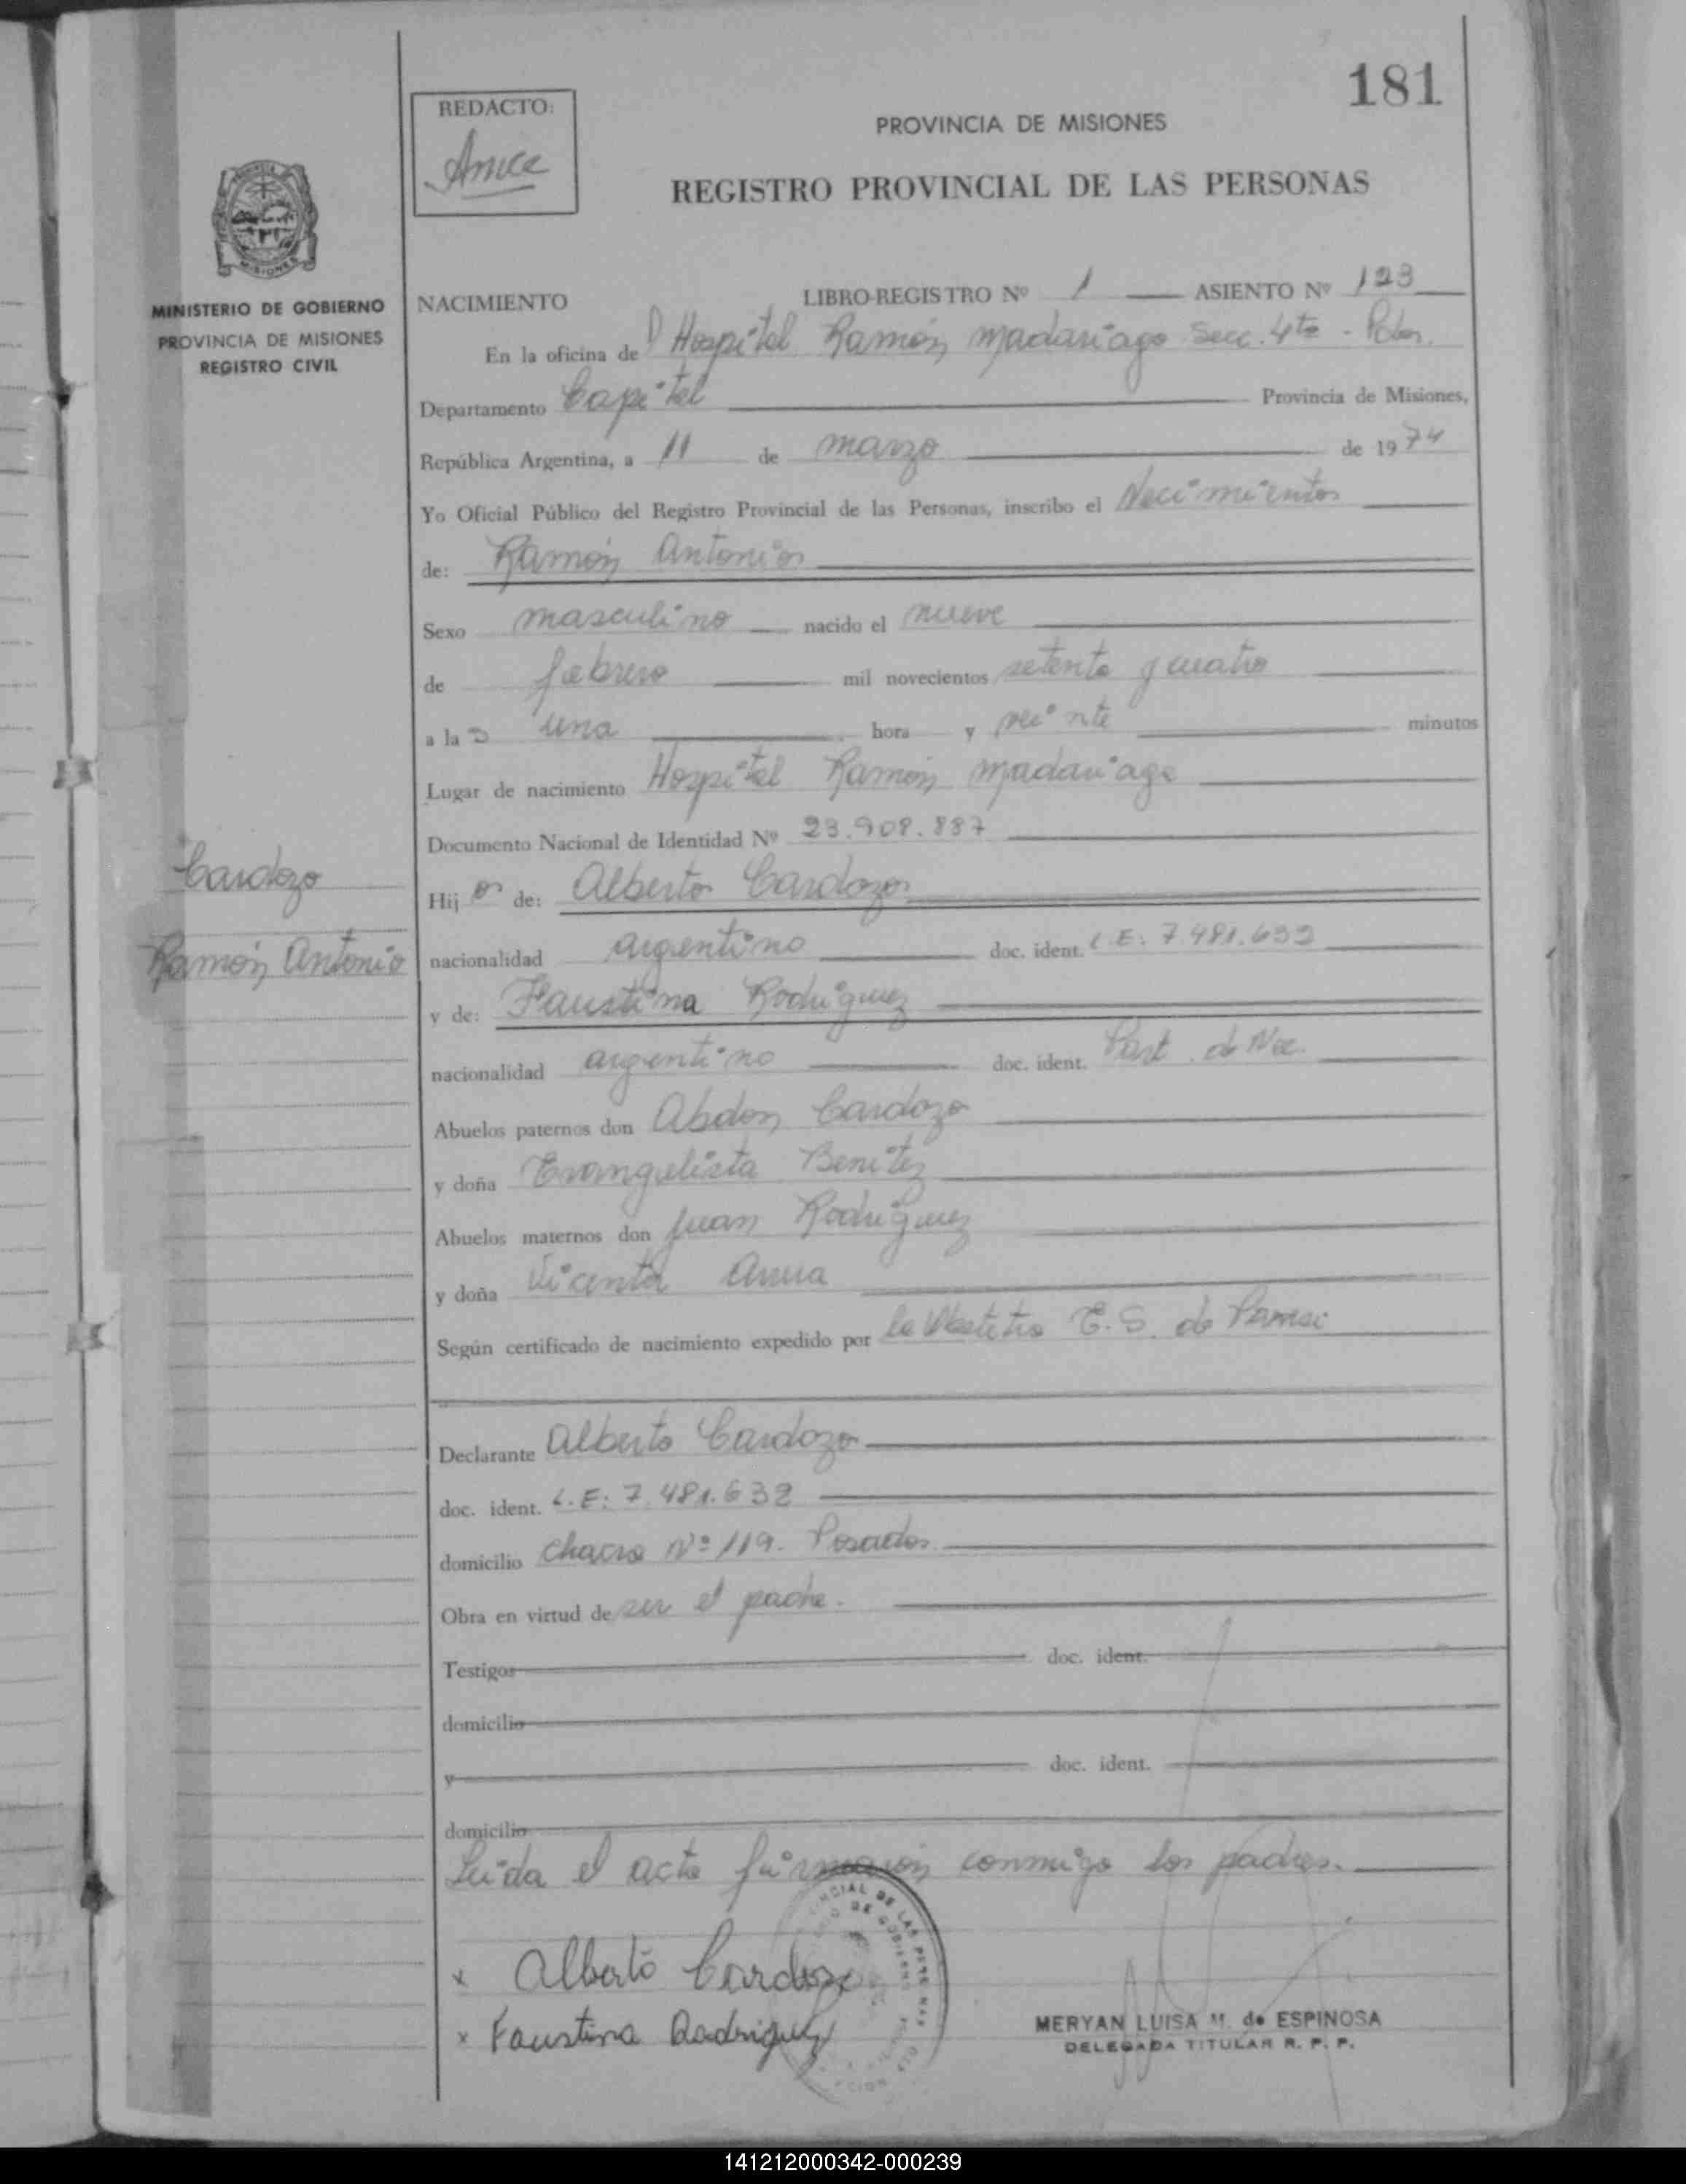 181
REDACTO:
PROVINCIA DE MISIONES
REGISTRO PROVINCIAL DE LAS PERSONAS
MISIONES
MINISTERIO DE GOBIERNO
PROVINCIA DE MISIONES
REGISTRO CIVIL
NACIMIENTO LIBRO-REGISTRO Nº 1 ASIENTO Nº 123
En la oficina de Hospital Ramón Madariaga Secc. 4ta - Pdas.
Departamento Capital Provincia de Misiones,
República Argentina, a 11 de marzo de 1974
Yo Oficial Público del Registro Provincial de las Personas, inscribo el Nacimiento
de: Ramón Antonio
Sexo masculino nacido el nueve
de febrero mil novecientos setenta y cuatro
a la una hora y veinte minutos
Lugar de nacimiento Hospital Ramón Madariaga
Documento Nacional de Identidad Nº 23.908.887
Cardozo
Hijo de: Alberto Cardozo
Ramón Antonio
nacionalidad argentino doc. ident. L.E: 7.481.632
y de: Faustina Rodriguez
nacionalidad argentino doc. ident. Part. de Nac.
Abuelos paternos don Abdon Cardozo
y doña Evangelista Benitez
Abuelos maternos don Juan Rodriguez
y doña Vicenta
Según certificado de nacimiento expedido por la E.S. de
Declarante Alberto Cardozo
doc. ident. L.E: 7.481.632
domicilio chacra Nº 119. Posadas.
Obra en virtud de ser el padre.
Testigos doc. ident.
domicilio
y doc. ident.
domicilio
Leida el acta firmaron conmigo los padres.
x Alberto Cardozo
x Faustina Rodriguez
MERYAN LUISA M. de ESPINOSA
DELEGADA TITULAR R. P. P.
141212000342-000239